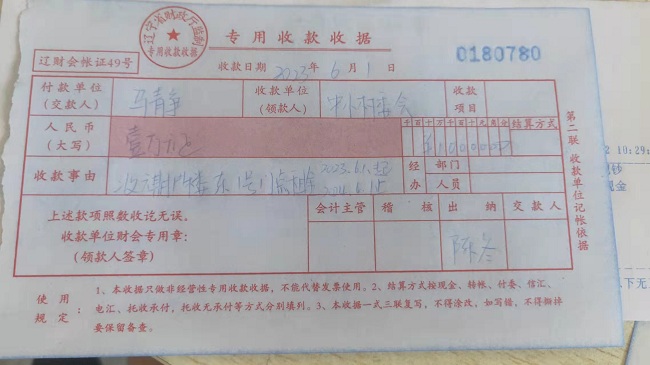 辽宁省财政厅监制
专用收款收据
专用收款收据
0180780
辽财会帐证49号
收款日期 2023年 6月 1日
付款单位
(交款人)
马静
收款单位
(领款人)
收款
项目
人民币
(大写)
壹万元正
千百十万千百十元角分
结算方式
¥1000000
收款事由
2023.6.1起
经办
部门
人员
上述款项照数收讫无误。
收款单位财会专用章:
(领款人签章)
会计主管
稽核
出纳
交款人
陈冬
第二联 收款单位记帐依据
使用规定:
1、本收据只做非经营性专用收款收据,不能代替发票使用。2、结算方式按现金、转帐、付委、信汇、
电汇、托收承付,托收无承付等方式分别填列。3、本收据一式三联复写,不得涂改,如写错,不得撕掉
要保留备查。